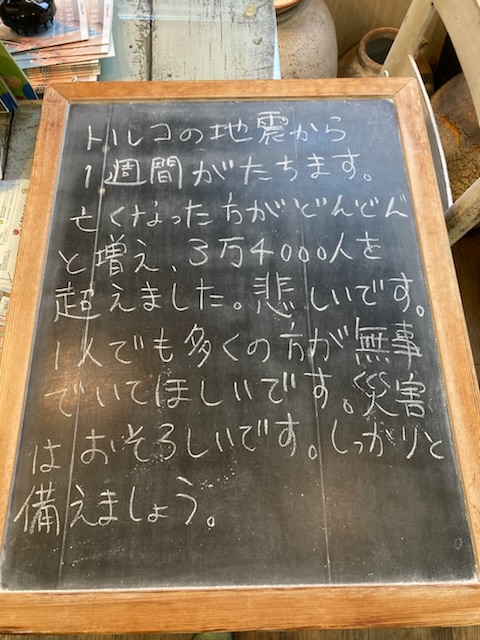 トルコの地震から
1週間がたちます。
亡くなった方がどんどん
と増え、3万4000人を
超えました。悲しいです。
1人でも多くの方が無事
でいてほしいです。災害
はおそろしいです。しっかりと
備えましょう。